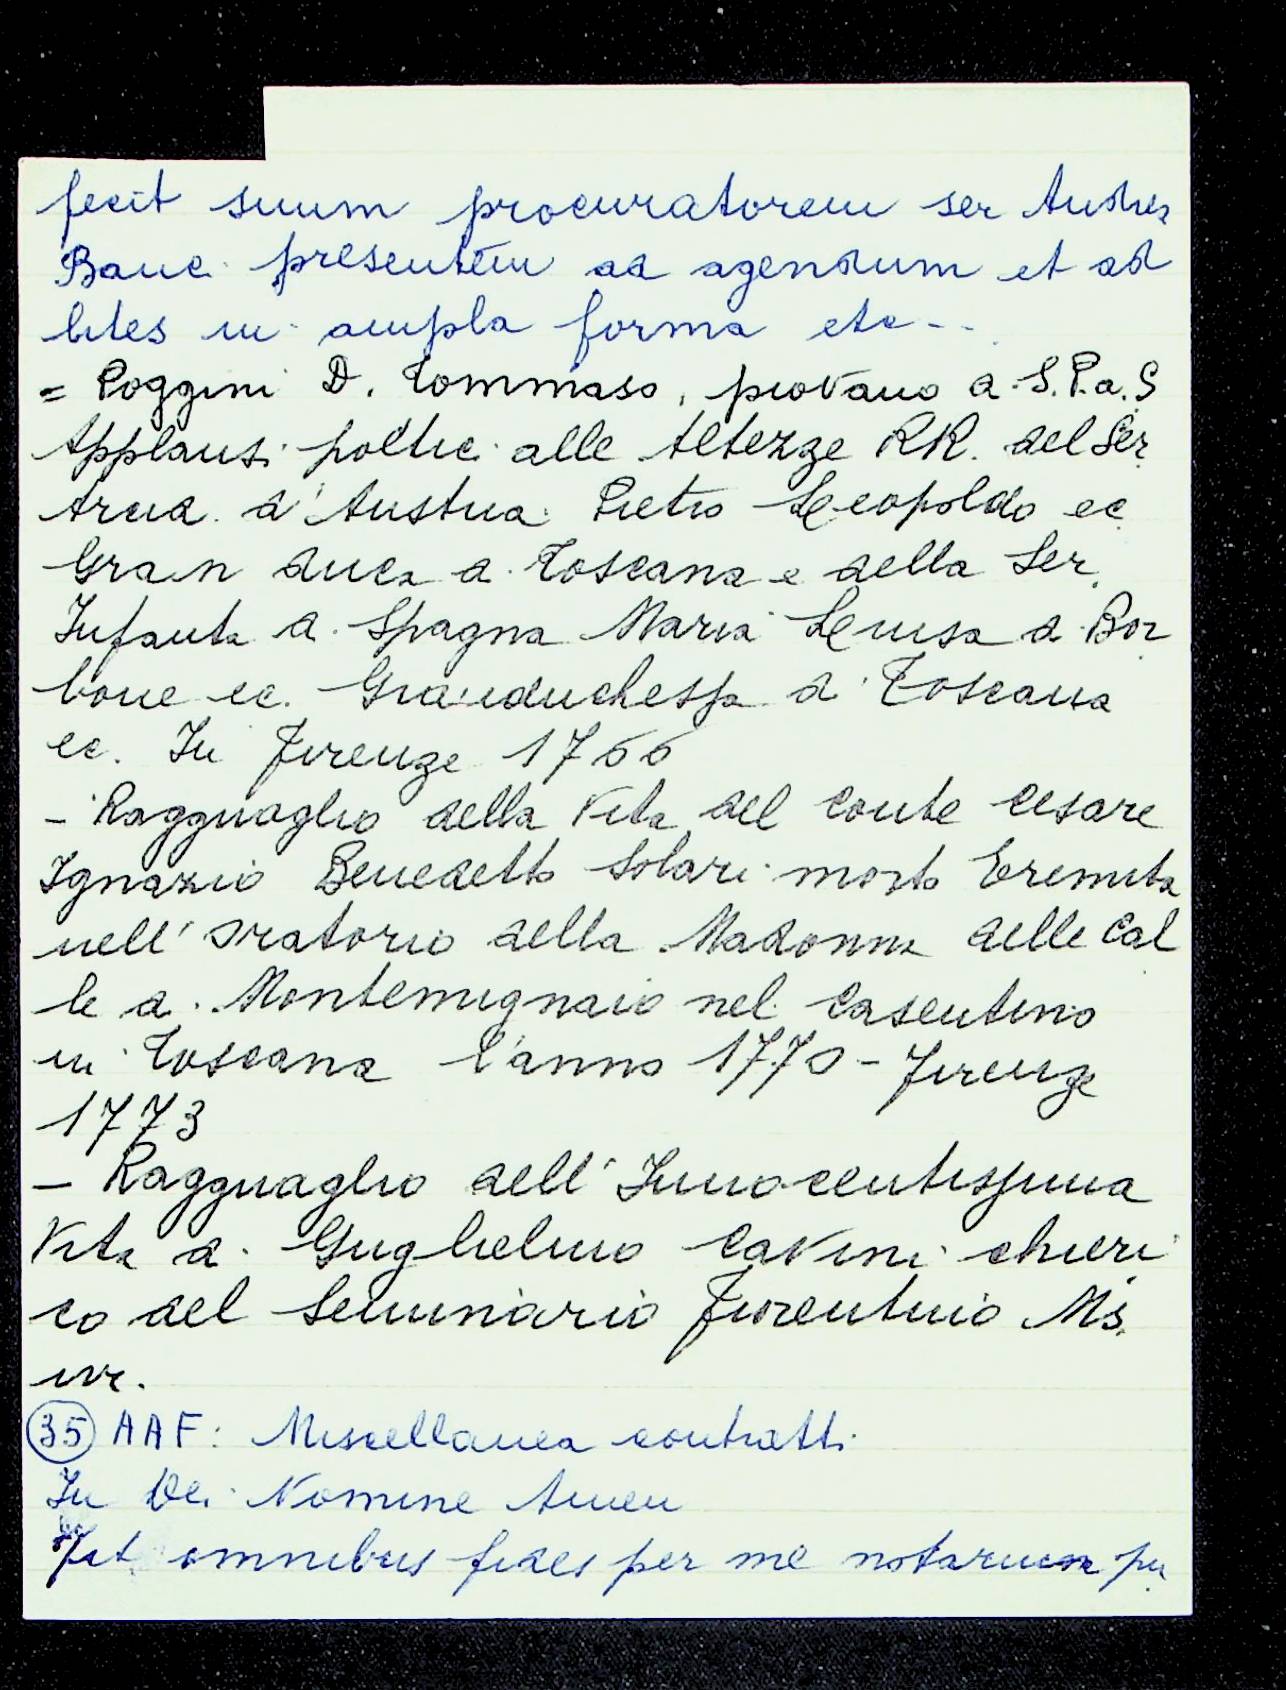 fecit suum procuratorem ser Andrea
Banci presentem ad agendum et ad
lites in ampla forma etc--
= Poggini D. Tommaso, piovano a S. P. a. S
Applausi poetici alle Altezze RR. del Ser.
Arcid. d'Austria Pietro Leopoldo ec
Gran duca di Toscana e della Ser.
Infanta di Spagna Maria Luisa di Bor
bone ec. Granduchessa di Toscana
ec. In Firenze 1766
- Ragguaglio della Vita del conte Cesare
Ignazio Benedetto Solari morto Eremita
nell'oratorio della Madonna delle Cal
le di Montemignaio nel Casentino
in Toscana l'anno 1770 - Firenze
1773
- Ragguaglio dell'Innocentissima
Vita di Guglielmo Cavini chieri
co del Seminario Fiorentino Ms.
ivi.
(35) AAF: Miscellanea contratti
In Dei Nomine Amen
Fit omnibus fides per me notarium pu